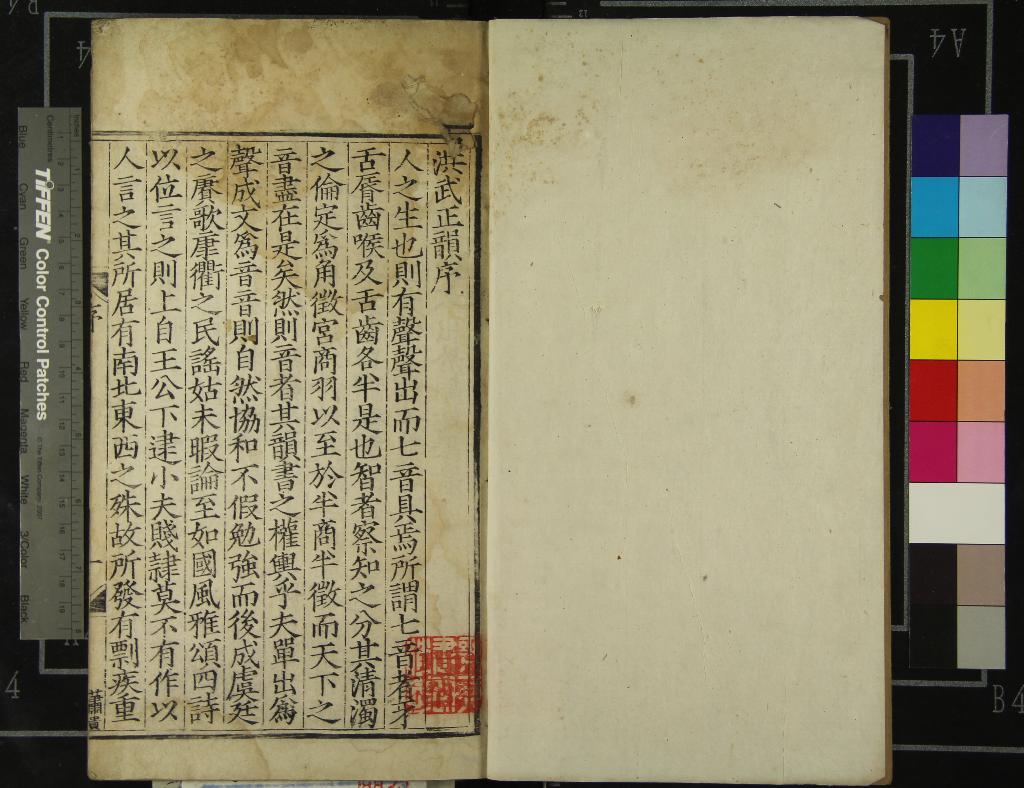 洪武正韻序
人之生也則有聲聲出而七音具焉所謂七音者牙
舌脣齒喉及舌齒各半是也智者察知之分其清濁
之倫定為角徵宮商羽以至於半商半徵而天下之
音盡在是矣然則音者其韻書之權輿乎夫單出為
聲成文為音音則自然協和不假勉強而後成虞廷
之賡歌康衢之民謠姑未暇論至如國風雅頌四詩
以位言之則上自王公下逮小夫賤隸莫不有作以
人言之其所居有南北東西之殊故所發有剽疾重
序
一
TIFFEN Color Control Patches
© The Tiffen Company, 2007
Centimetres
Inches
Blue
Cyan
Green
Yellow
Red
Magenta
White
3/Color
Black
A4
B4
4